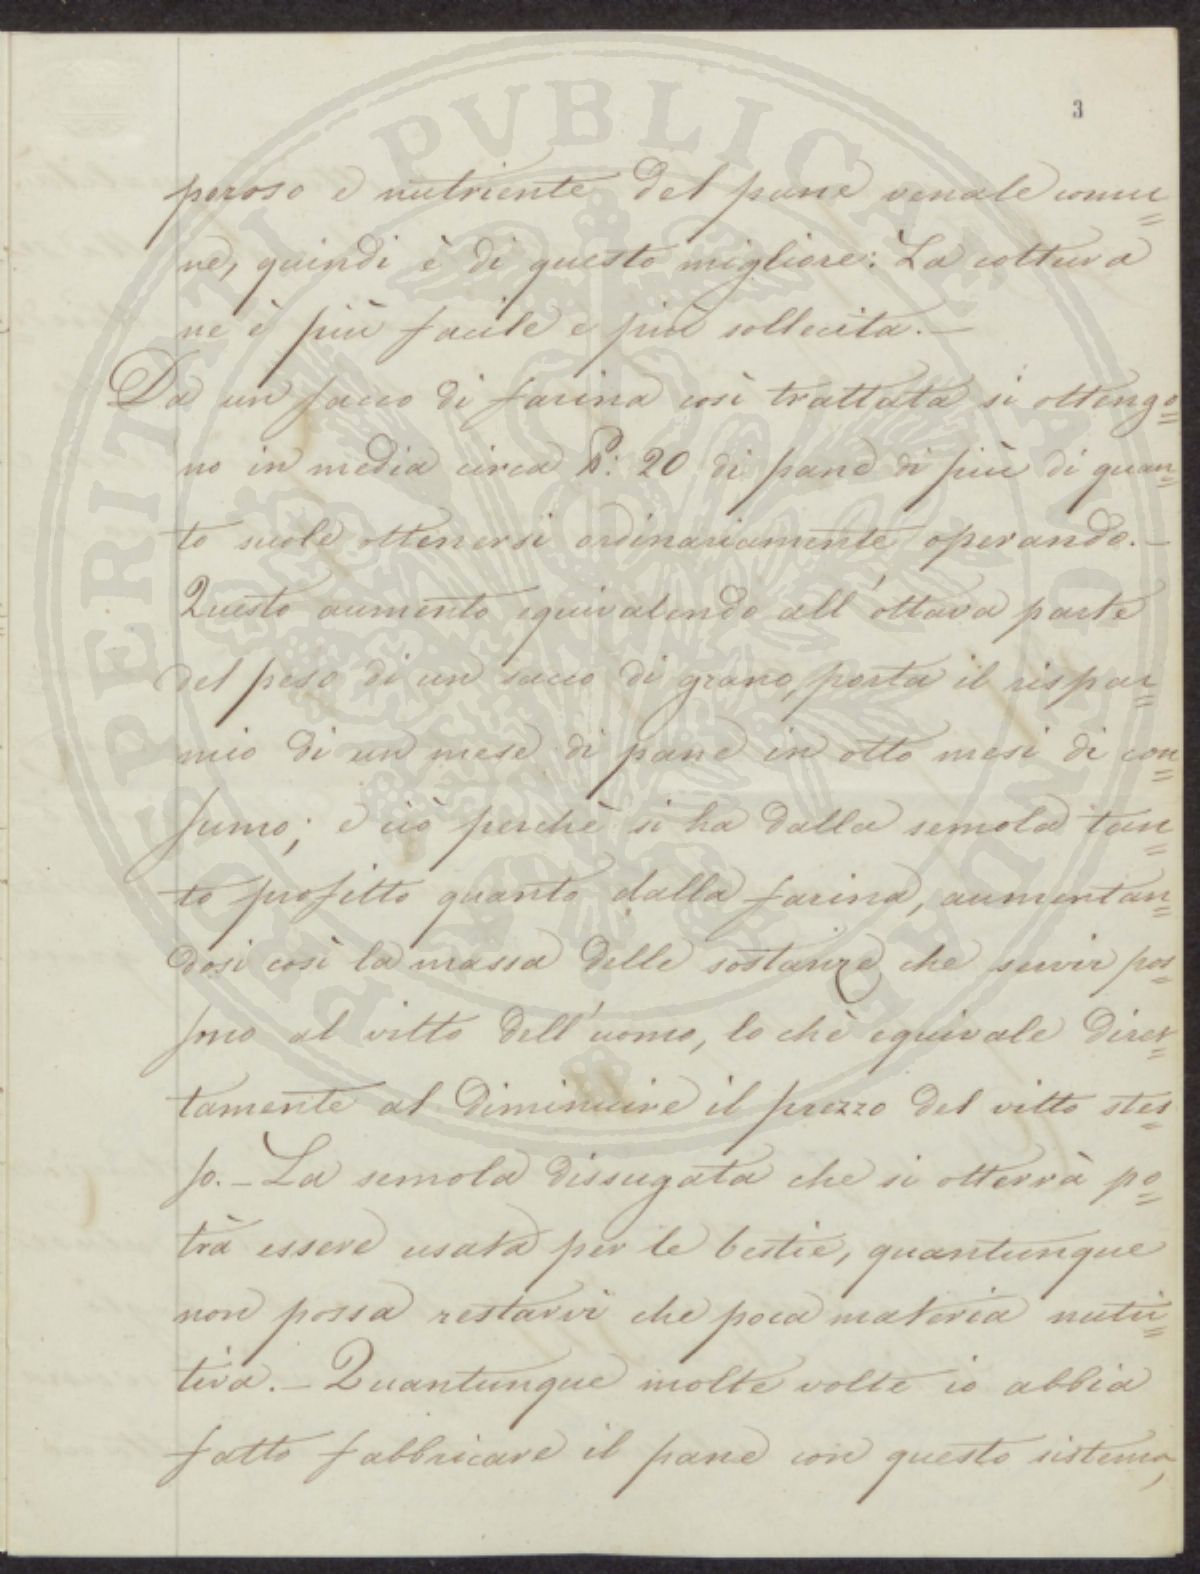 3
poroso e nutriente del pane venale comu=
ne, quindi è di questo migliore: La cottura
ne è più facile e più sollecita.—
Da un sacco di farina così trattata si ottengo=
no in media circa 20 di pane di più di quan=
to suole ottenersi ordinariamente operando.—
Questo aumento equivalendo all'ottava parte
del peso di un sacco di grano, porta il rispar=
mio di un mese di pane in otto mesi di con=
sumo; e ciò perchè si ha dalla semola tan=
to profitto quanto dalla farina, aumentan=
dosi così la massa delle sostanze che servir pos=
sono al vitto dell'uomo, lo chè equivale diret=
tamente al diminuire il prezzo del vitto stes=
so.— La semola dissugata che si otterrà po=
trà essere usata per le bestie, quantunque
non possa restarvi che poca materia nutri=
tiva.— Quantunque molte volte io abbia
fatto fabbricare il pane con questo sistema,
PROSPERITATI PVBLICAE AVGENDAE